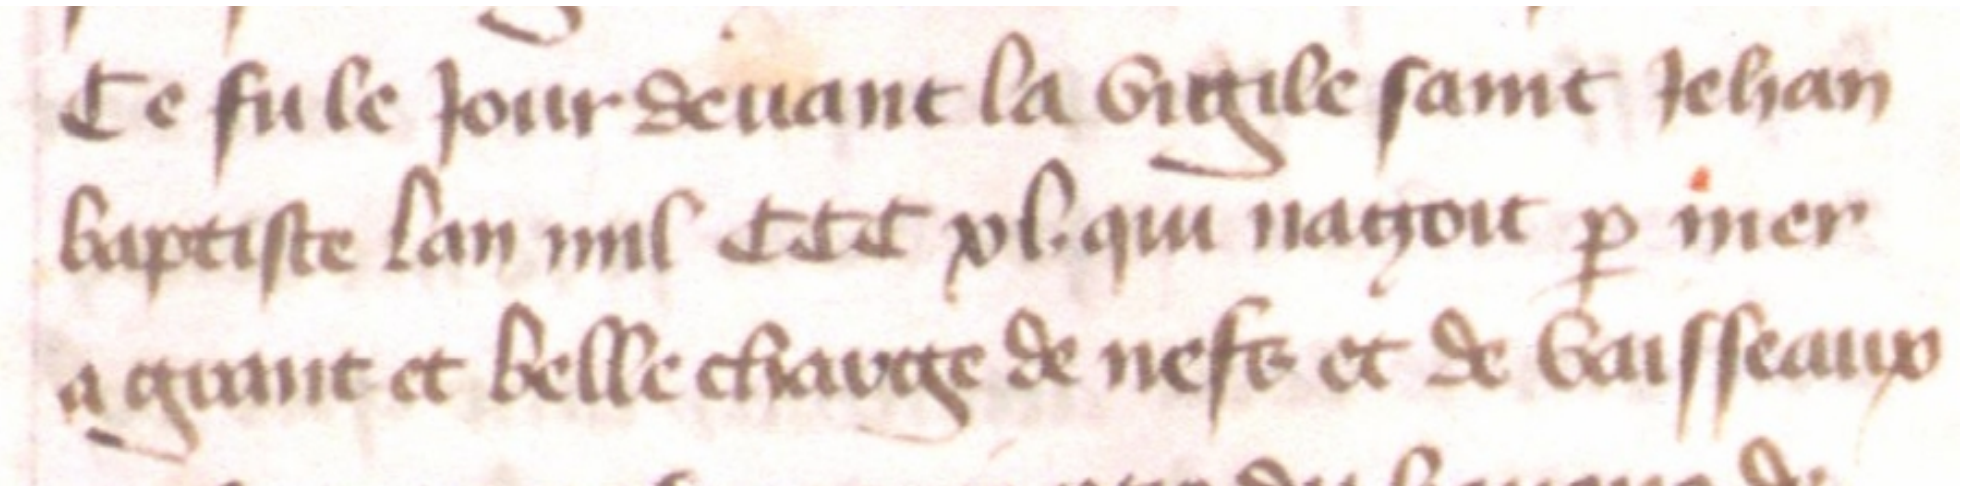 Ce fu le Jour deuant la vigile saint Jehan
baptiste lan mil CCC xl. qui nagoit ꝑ mer
a grant et belle charge de nefs et de vaisseaux